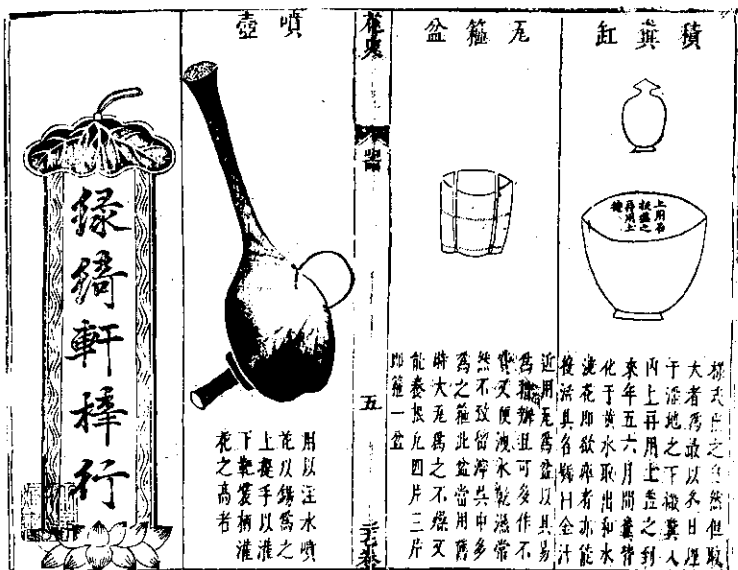 積糞缸
上用石
板盖之
再用土
樣式由之自然但取
大者爲最以冬日埋
于漥地之下糞入
內上再用土盖之到
來年五六月間糞皆
化于黃水取出和水
澆花即欲死者亦能
後活具名號曰金汁
瓦箍盆
近用瓦爲盆以具易
爲辦且可多作不
費又便洩水乾濕常
然不致留滯其中多
爲之箍此盆當用舊
時大瓦爲之不燥又
能養根凡四片三片
即箍一盆
花史
器
五
卷
噴壺
用以注水噴
花以錫爲之
上提手以灌
下裝柄灌
花之高者
綠綺軒梓行